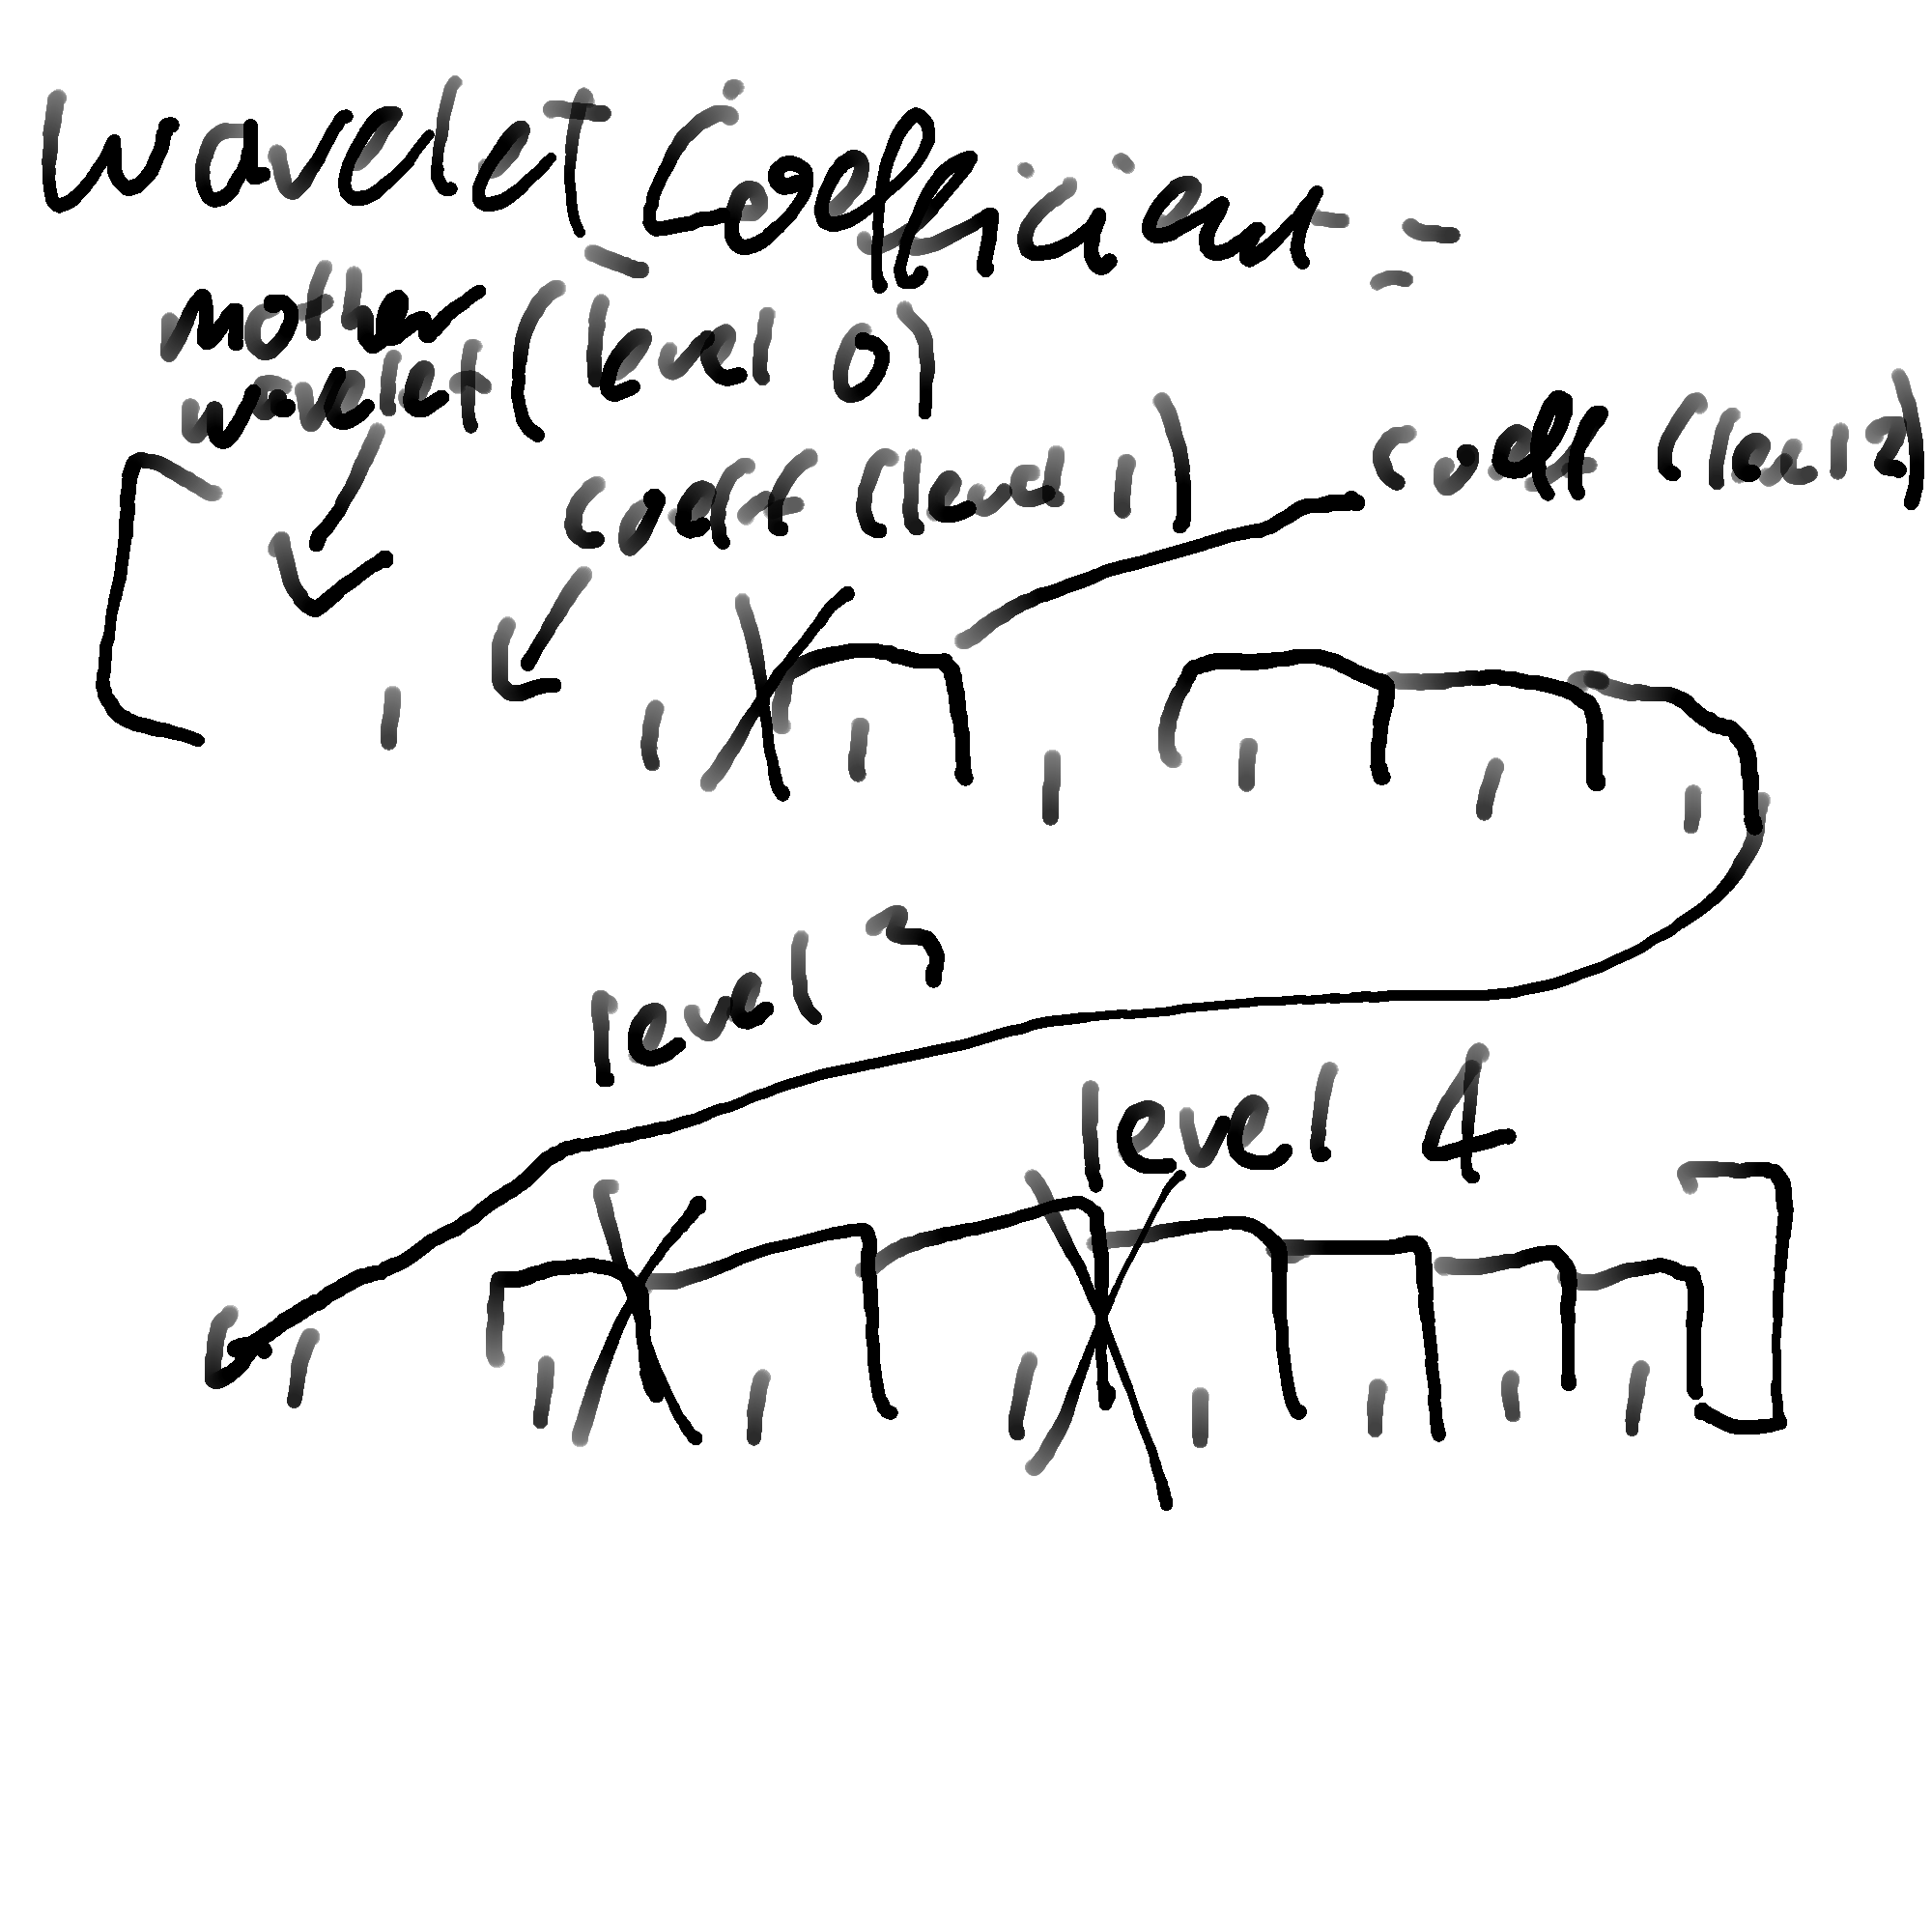 Wavelet Coefficient =
mother
wavelet (level 0)
coeff (level 1)
coeff (level 2)
level 3
level 4